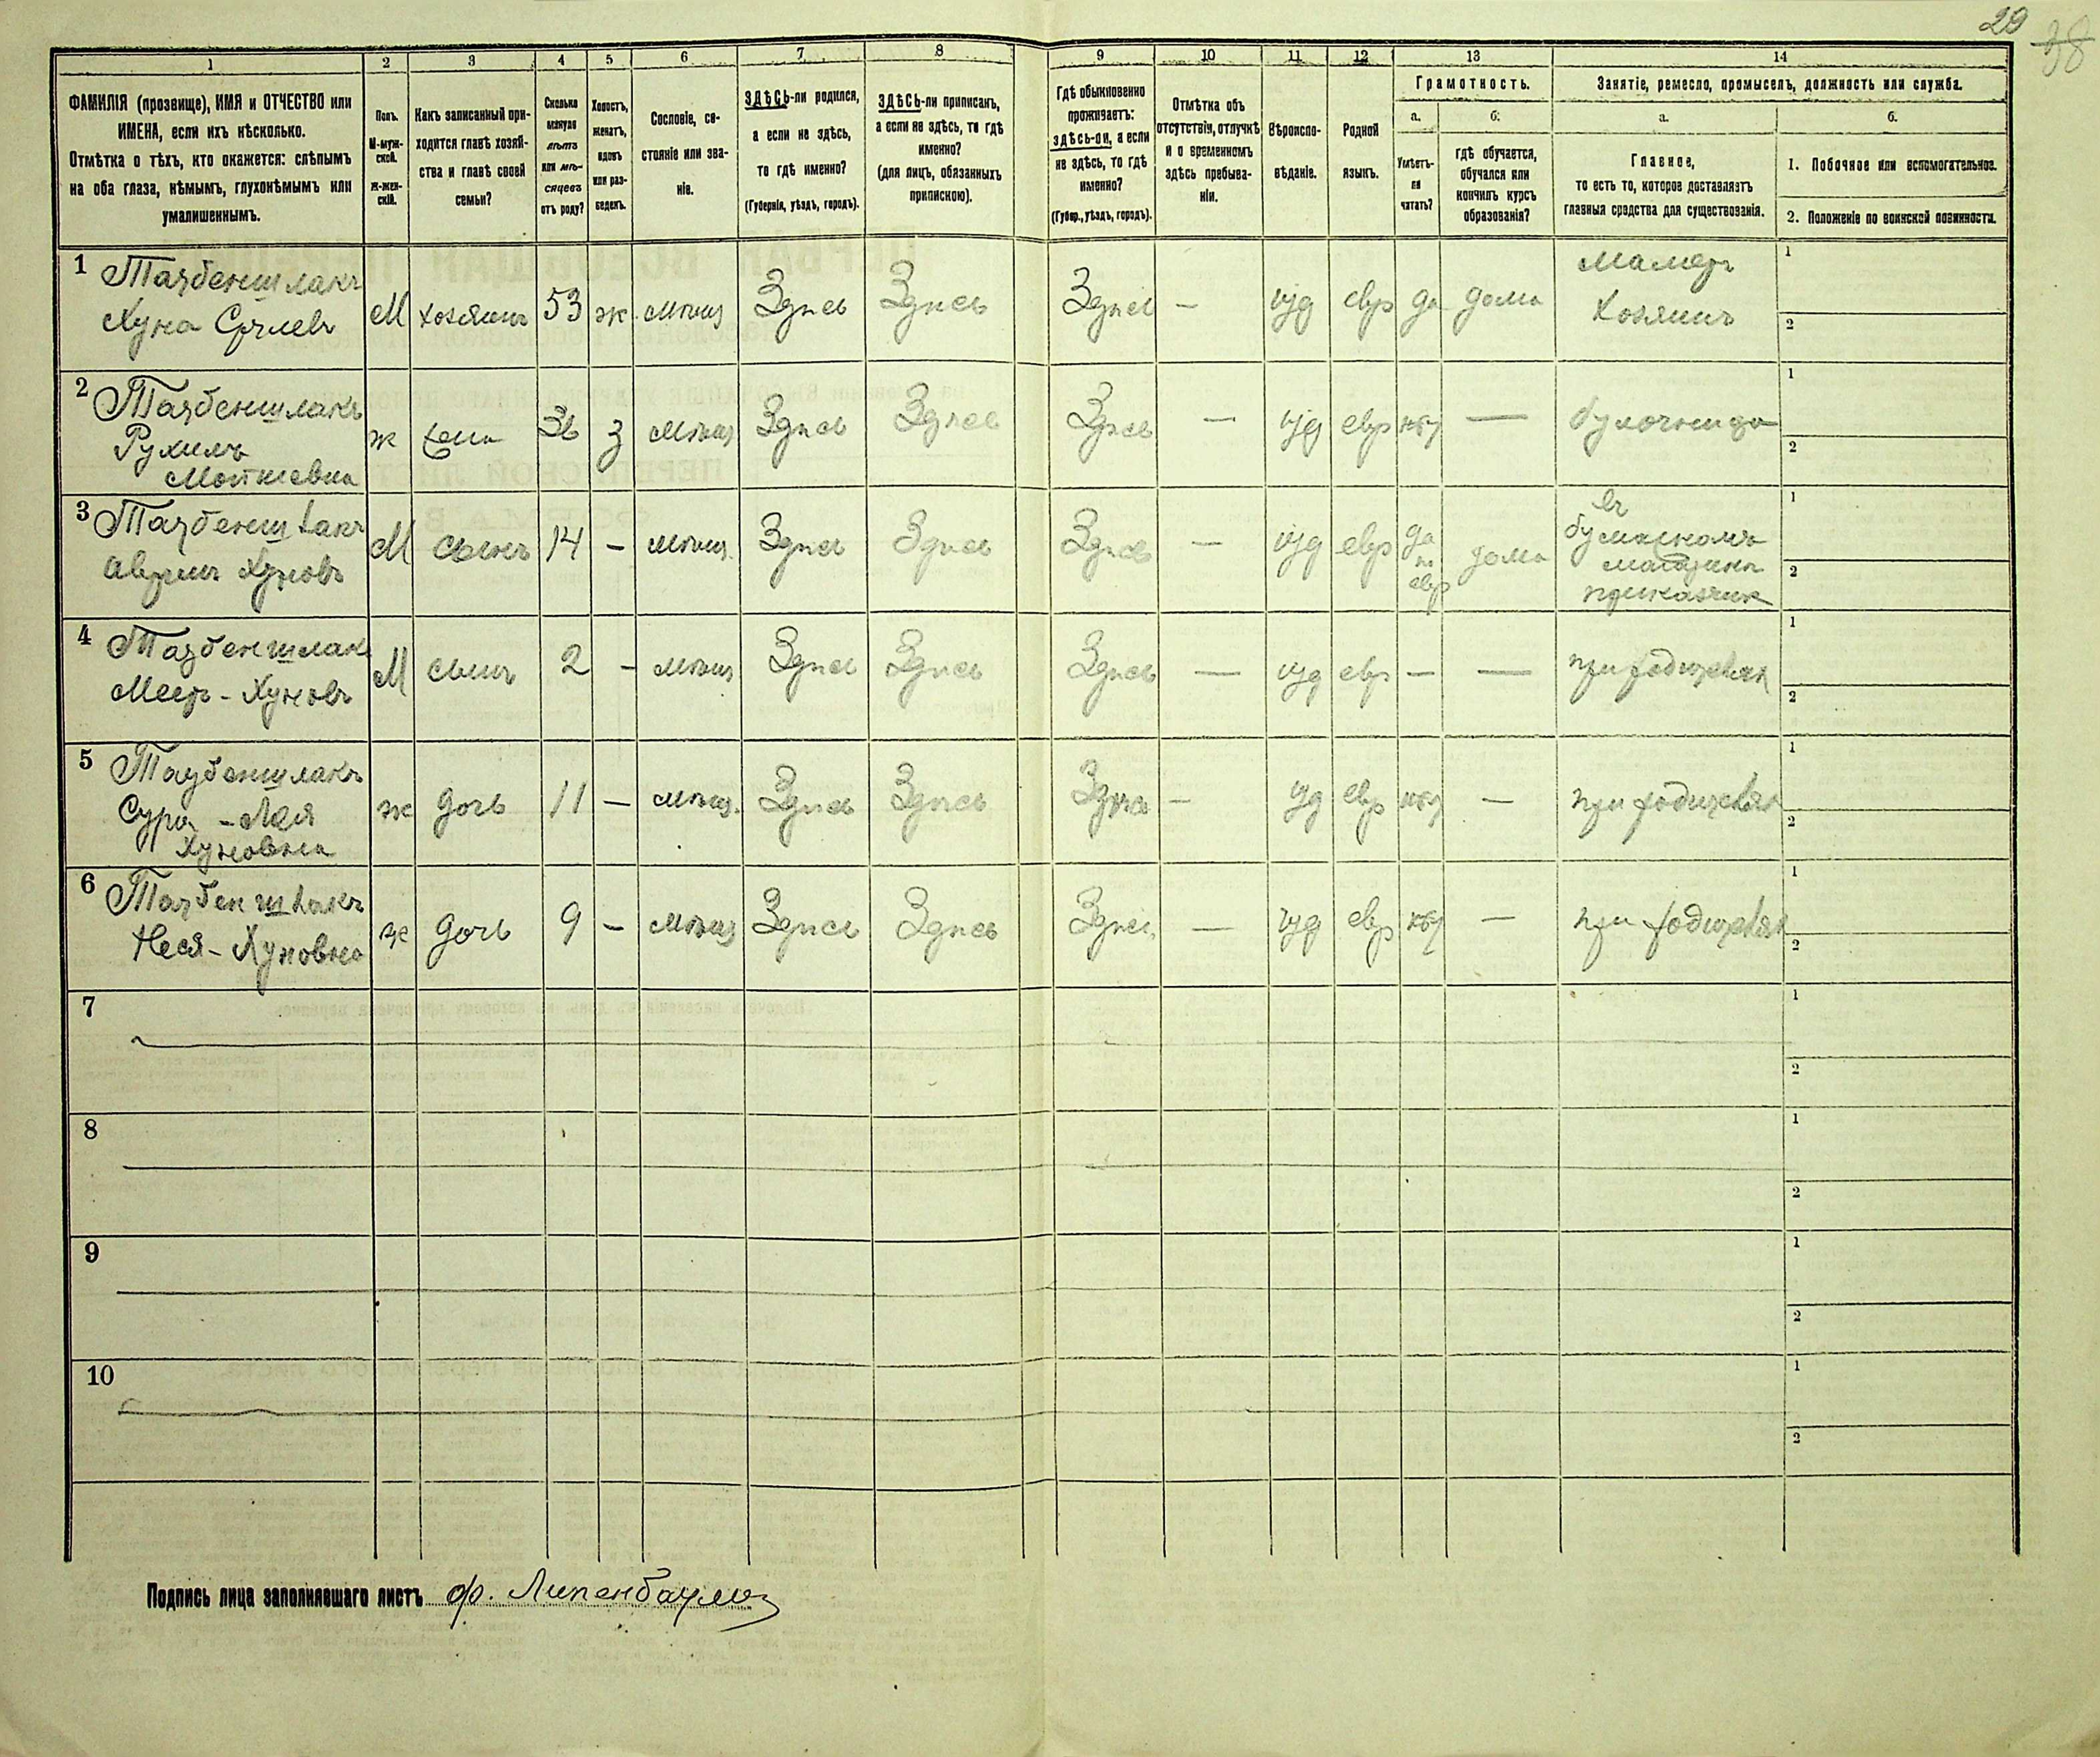 29
38
1 2 3 4 5 6 7 8 9 10 11 12 13 14
ФАМИЛІЯ (прозвище), ИМЯ и ОТЧЕСТВО или
ИМЕНА, если ихъ нѣсколько.
Отмѣтка о тѣхъ, кто окажется: слѣпымъ
на оба глаза, нѣмымъ, глухонѣмымъ или
умалишеннымъ.
Полъ.
М-муж-
ской.
Ж-жен-
скій.
Какъ записанный при-
ходится главѣ хозяй-
ства и главѣ своей
семьи?
Сколько
минуло
лѣтъ
или мѣ-
сяцевъ
отъ роду?
Холостъ,
женатъ,
вдовъ
или раз-
веденъ.
Сословіе, со-
стояніе или зва-
ніе.
ЗДѢСЬ-ли родился,
а если не здѣсь,
то гдѣ именно?
(Губернія, уѣздъ, городъ).
ЗДѢСЬ-ли приписанъ,
а если не здѣсь, то гдѣ
именно?
(для лицъ, обязанныхъ
припискою).
Гдѣ обыкновенно
проживаетъ:
здѣсь-ли, а если
не здѣсь, то гдѣ
именно?
(Губер., уѣздъ, городъ).
Отмѣтка объ
отсутствіи, отлучкѣ
и о временномъ
здѣсь пребыва-
ніи.
Вѣроиспо-
вѣданіе.
Родной
языкъ.
Грамотность.
а.
Умѣетъ-
ли
читать?
б.
гдѣ обучается,
обучался или
кончилъ курсъ
образованія?
Занятіе, ремесло, промыселъ, должность или служба.
а.
Главное,
то есть то, которое доставляетъ
главныя средства для существованія.
б.
1. Побочное или вспомогательное.
2. Положеніе по воинской повинности.
1 Таубеншлакъ
Хуна Срулевъ
М хозяинъ 53 ж мѣщ Здѣсь Здѣсь Здѣсь — іуд евр да дома
Хозяинъ
1
2
2 Таубеншлакъ
Рухиль
Мошкевна
ж жена 36 З мѣщ Здѣсь Здѣсь Здѣсь — іуд евр нѣт — булочница
1
2
3 Таубеншлакъ
Аврумъ Хуновъ
М сынъ 14 – мѣщ. Здѣсь Здѣсь Здѣсь — іуд евр да
по
евр
дома
въ
магазинѣ
приказчик
1
2
4 Таубеншлакъ
Меер - Хуновъ
М сынъ 2 – мѣщ Здѣсь Здѣсь Здѣсь — іуд евр — — при родителях
1
2
5 Таубеншлакъ
Сура - Лая
Хуновна
ж дочь 11 – мѣщ. Здѣсь Здѣсь Здѣсь — іуд евр нѣт — при родителях
1
2
6 Таубеншлакъ
Неся - Хуновна
ж дочь 9 – мѣщ Здѣсь Здѣсь Здѣсь — іуд евр нѣт — при родителях
1
2
7
1
2
8
1
2
9
1
2
10
1
2
Подпись лица заполнявшаго листъ Ф. Липенбаумъ